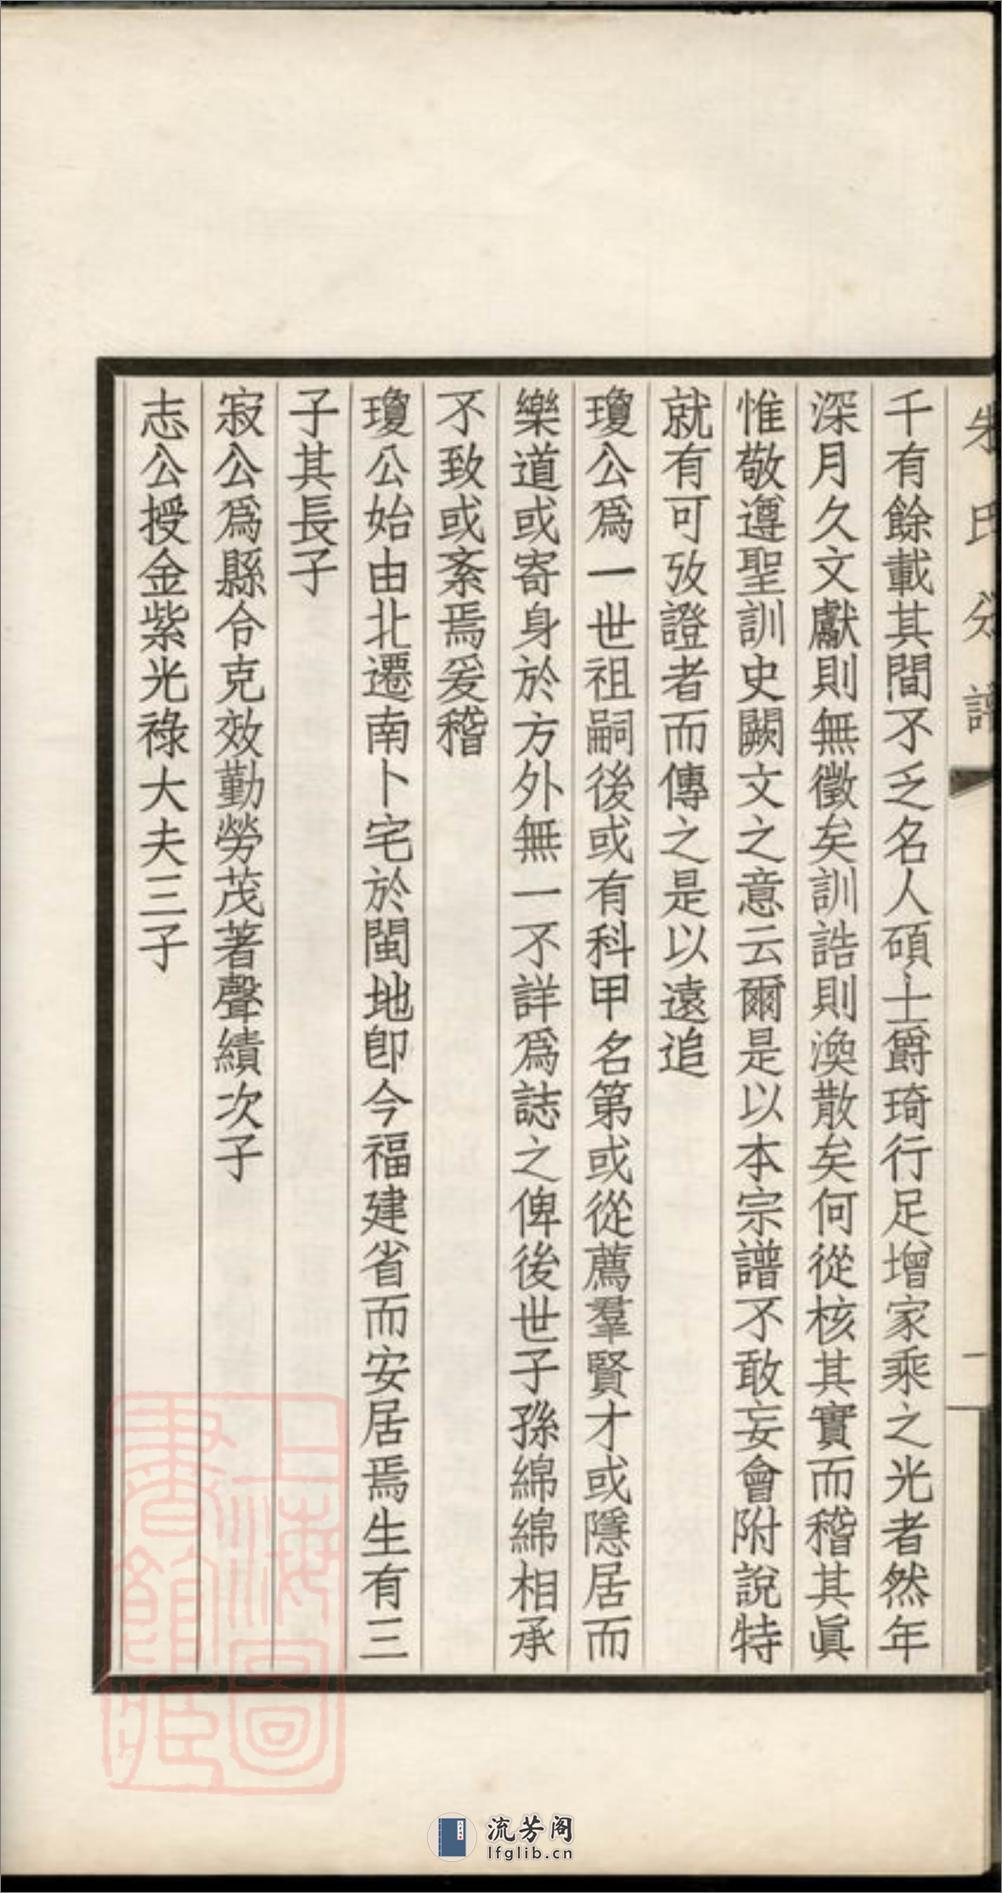 朱氏分譜
一
千有餘載其間不乏名人碩士爵琦行足增家乘之光者然年
深月久文獻則無徵矣訓誥則渙散矣何從核其實而稽其眞
惟敬遵聖訓史闕文之意云爾是以本宗譜不敢妄會附說特
就有可攷證者而傳之是以遠追
瓊公爲一世祖嗣後或有科甲名第或從薦羣賢才或隱居而
樂道或寄身於方外無一不詳爲誌之俾後世子孫綿綿相承
不致或紊焉爰稽
瓊公始由北遷南卜宅於閩地卽今福建省而安居焉生有三
子其長子
寂公爲縣令克效勤勞茂著聲績次子
志公授金紫光祿大夫三子
上海圖書館藏
流芳阁
lfglib.cn